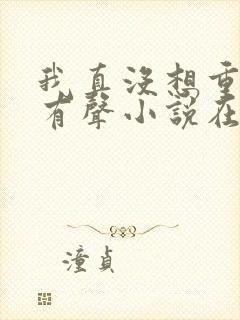 我真没想重
有聲小說在
潼貞